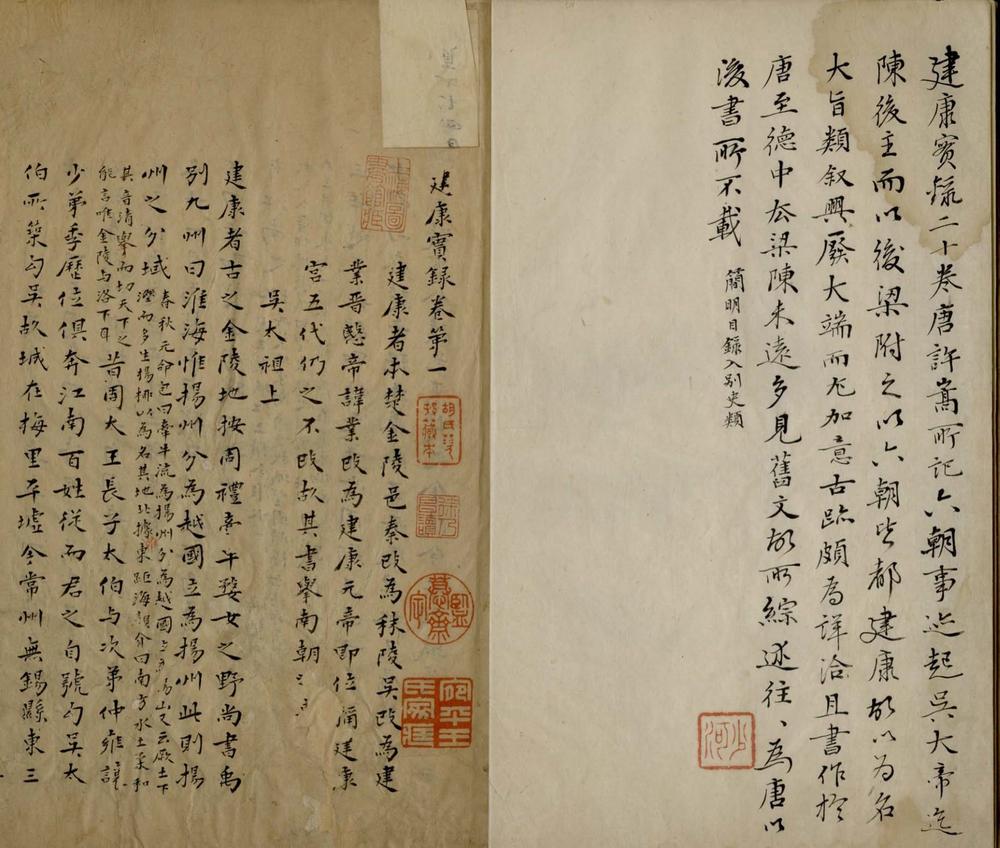 建康實錄二十卷唐許嵩所記六朝事迹起吳大帝迄
陳後主而以後梁附之以六朝皆都建康故以為名
大旨類叙興廢大端而尤加意古跡頗為詳洽且書作於
唐至德中去梁陳未遠多見舊文故所綜述往、為唐以
後書所不載
簡明目錄入別史類
少河
建康實錄卷第一
胡氏
藏本
建康者本楚金陵邑秦改為秣陵吳改為建
業晋愍帝諱業改為建康元帝即位稱建康
宮五代仍之不改故其書舉南朝
吳太祖上
建康者古之金陵地按周禮牽牛婺女之野尚書禹
別九州曰淮海惟揚州分為越國立為揚州此則揚
州之分域
春秋元命包曰牽牛流為揚州分為越國
其地北據東距海
其音清舉而切天下之
能言唯金陵与洛下耳
昔周大王長子太伯与次弟仲雍讓
少弟季歷位俱奔江南百姓從而君之自號勾吳太
伯所築勾吳故城在梅里平墟今常州無錫縣東三